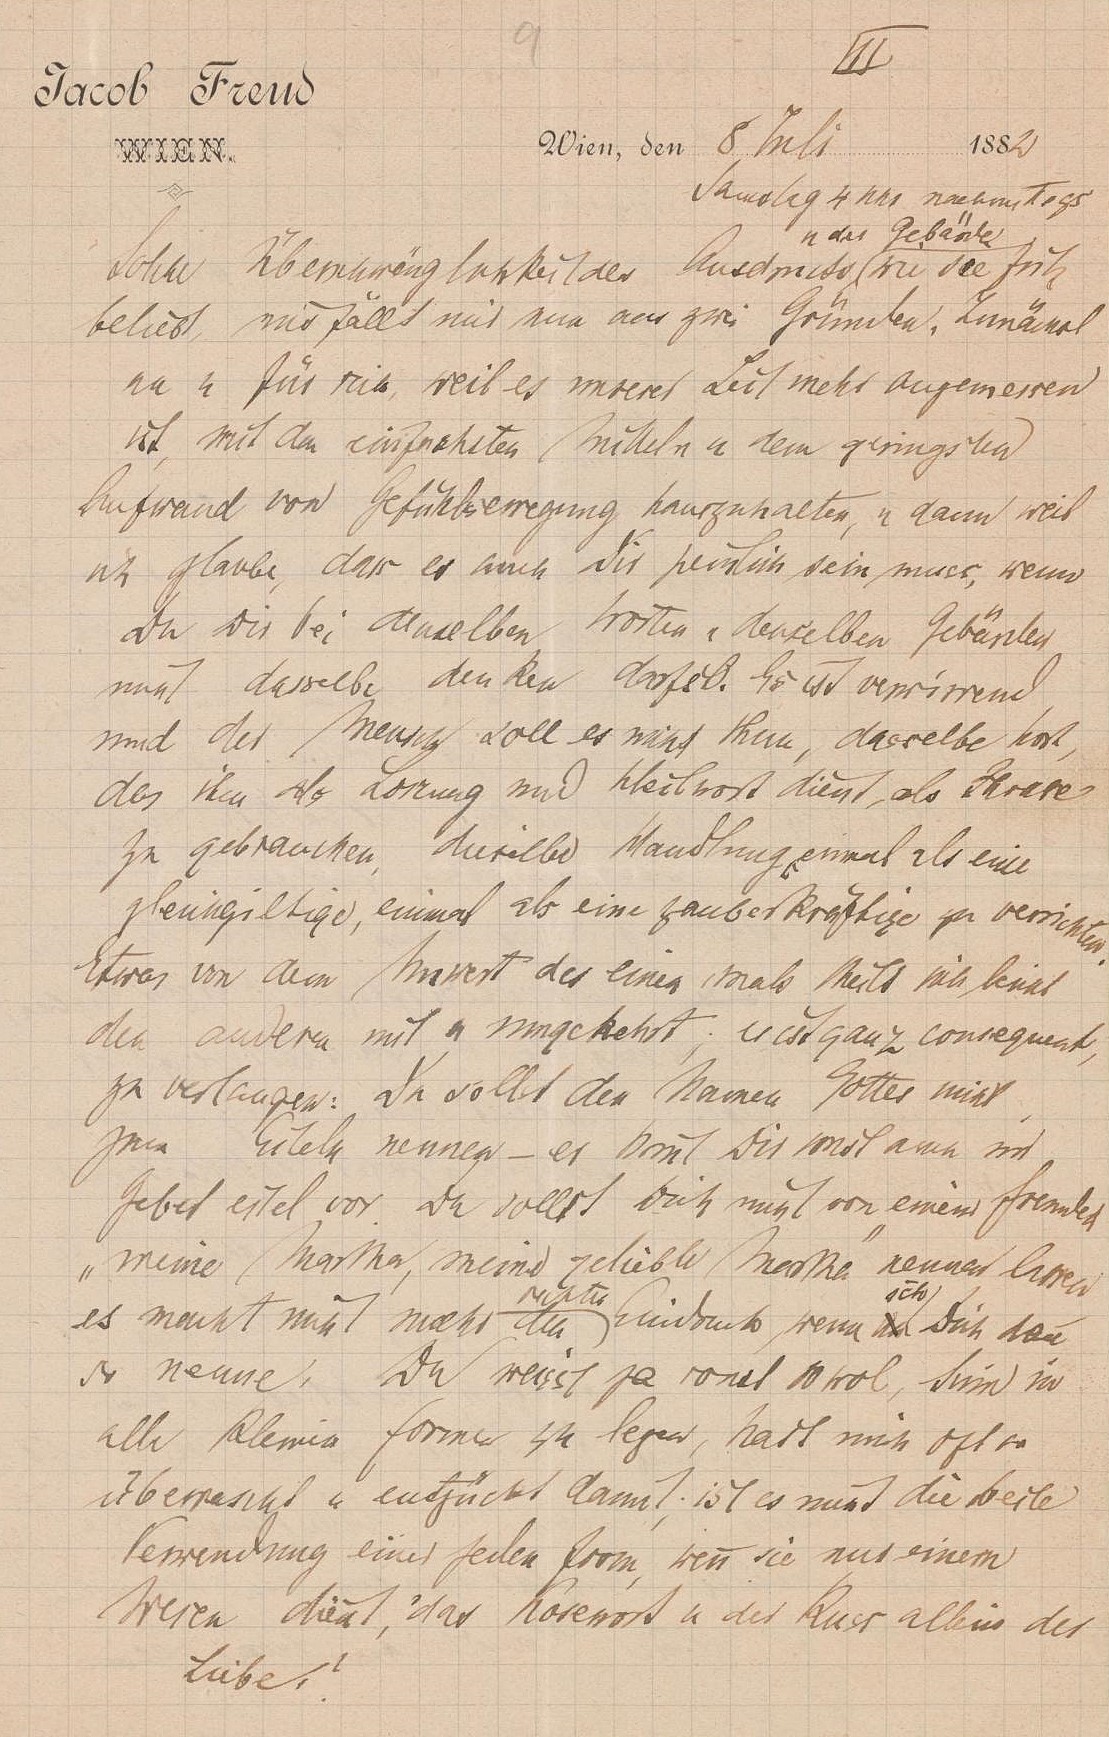 9
III
Jacob Freud
WIEN.
Wien, den 8 Juli 1882
Samstag 4 Uhr nachmittags
u der Gebärde
Solche Überschwänglichkeit des Ausdrucks (wie sie Fritz
beliebt, missfällt mir nun aus zwei Gründen. Zunächst
an u für sich, weil es unserer Zeit mehr angemessen
ist, mit den einfachsten Mitteln u dem geringsten
Aufwand von Gefühlserregung hauszuhalten, u dann weil
ich glaube, dass es auch Dir peinlich sein muss, wenn
Du Dir bei denselben Worten u denselben Gebärden
nicht dasselbe denken darfst. Es ist verwirrend
und der Mensch soll es nicht thun, dasselbe Wort,
das ihm als Losung und Heilwort dient, als Phrase
zu gebrauchen, dieselbe Handlung einmal als eine
gleichgiltige, einmal als eine zauberkräftige zu verrichten.
Etwas von dem Unwert des einen mals theilt sich beim
den anderen mit u umgekehrt; es ist ganz consequent,
zu verlangen: Du sollst den Namen Gottes nicht
zum Eiteln nennen – es kommt Dir sonst auch im
Gebet eitel vor. Du sollst Dich nicht von einem Fremden
„meine Martha, meine geliebte Martha" nennen lassen
es macht nicht mehr den rechten Eindruck wenn ich Dich dann
so nenne. Du weisst ja sonst so wol, Sinn in
alle kleinen Formen zu legen, hast mich oft so
überrascht u entzückt damit; ist es nicht die beste
Verwendung einer jeden Form, wenn sie nur einem
Wesen dient, das Kosewort u der Kuss allein der
Liebe!